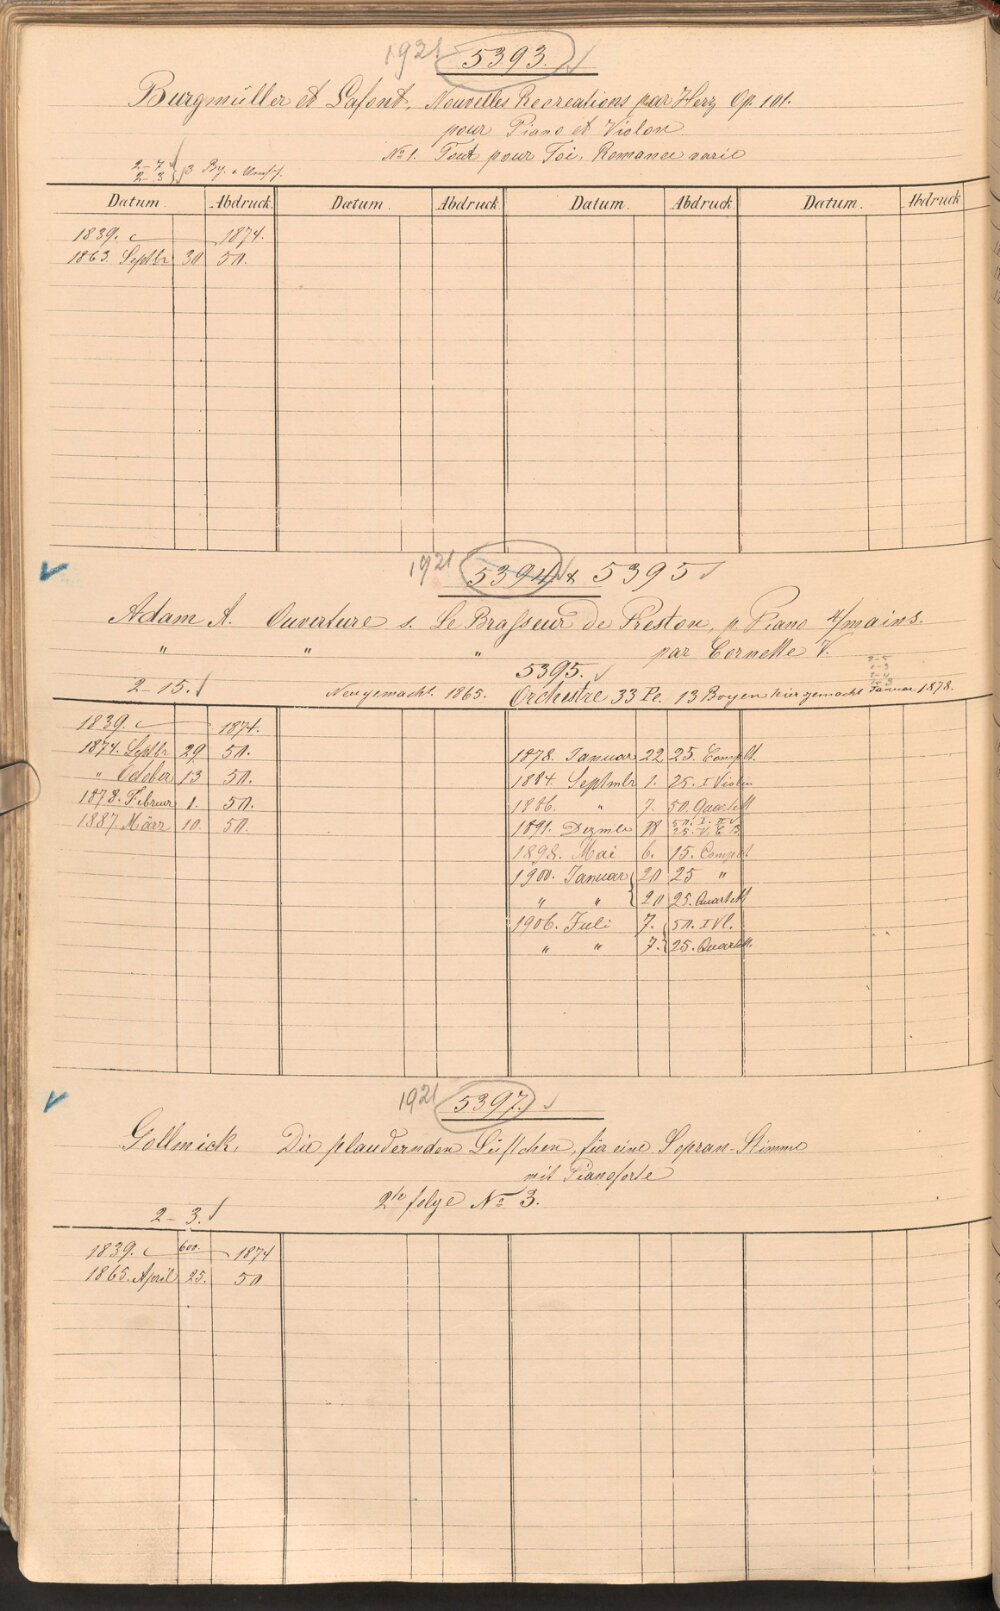 1921 5393.
Burgmüller et Lafont, Nouvelles Recreations par Herz Op 101.
pour Piano et Violon
No 1. Tout pour Toi, Romance varié
2-7
2-3 } 3 Bg.
Datum. Abdruck. Datum. Abdruck. Datum. Abdruck Datum. Abdruck
1839. 1874.
1863. Septbr 30 50.
1921 5394 & 5395
Adam A. Ouverture s. Le Brasseur de Preston, p. Piano 4/mains.
" " " par Cornette V.
5395.
2-5
1-3
2-4
2-15. Neugemacht. 1865. Orchestre 33 Pl. 13 Bogen hier gemacht Januar 1878.
1839. 1874.
1874. Septbr 29 50.
" October 13 50.
1878. Februar 1. 50.
1887 März 10. 50.
1878. Januar 22 25. Complt.
1884. Septmbr 1. 25. I Violin
1886. " 7. 50. Quartett
1891. Dezmbr 18 50. I. II V.
25. V. C. B.
1898. Mai 6. 15. Complet
1900. Januar 20 25 "
" " 20 25. Quartett
1906. Juli 7. 50. I Vl.
" " 7. 25. Quartett.
1921 5397.
Gollmick, Die plaudernden Lüftchen, für eine Sopran-Stimme
mit Pianoforte
2te folge No 3.
2-3.
1839. 600. 1874
1865. April 25. 50